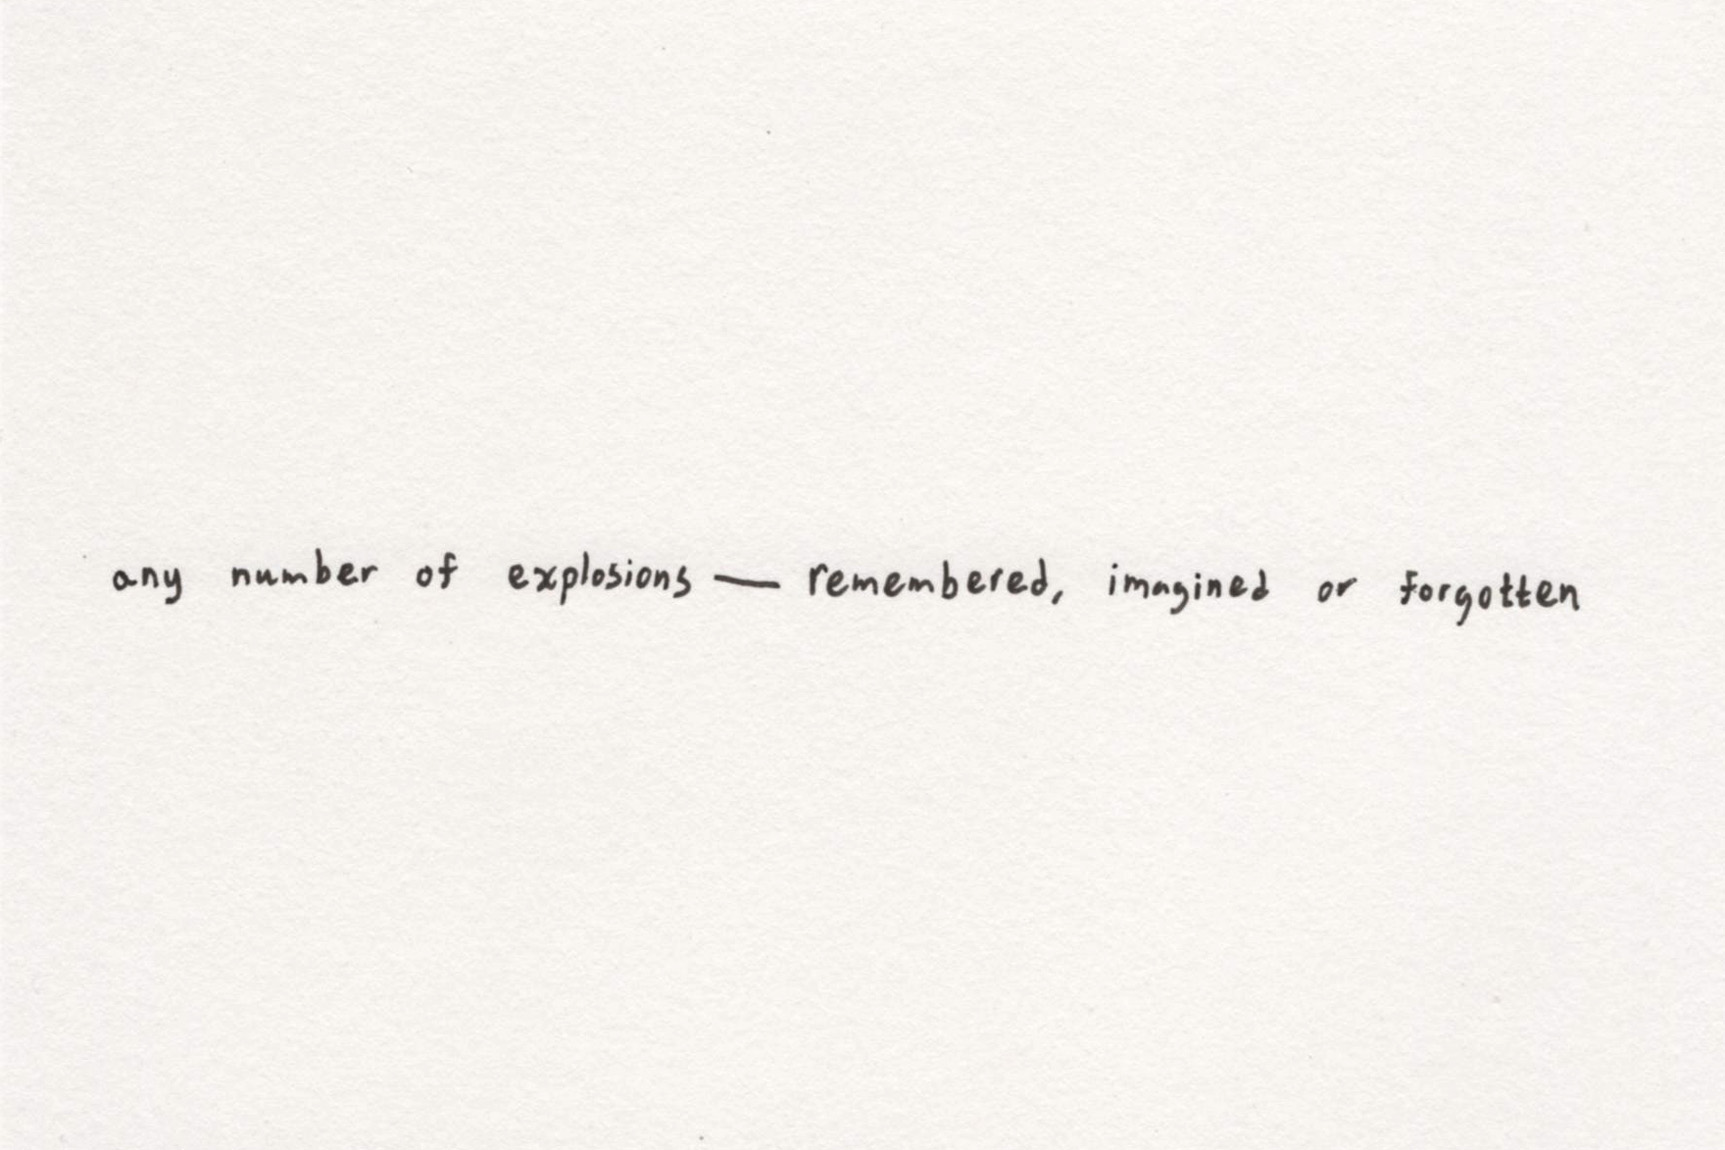 any number of explosions — remembered, imagined or forgotten